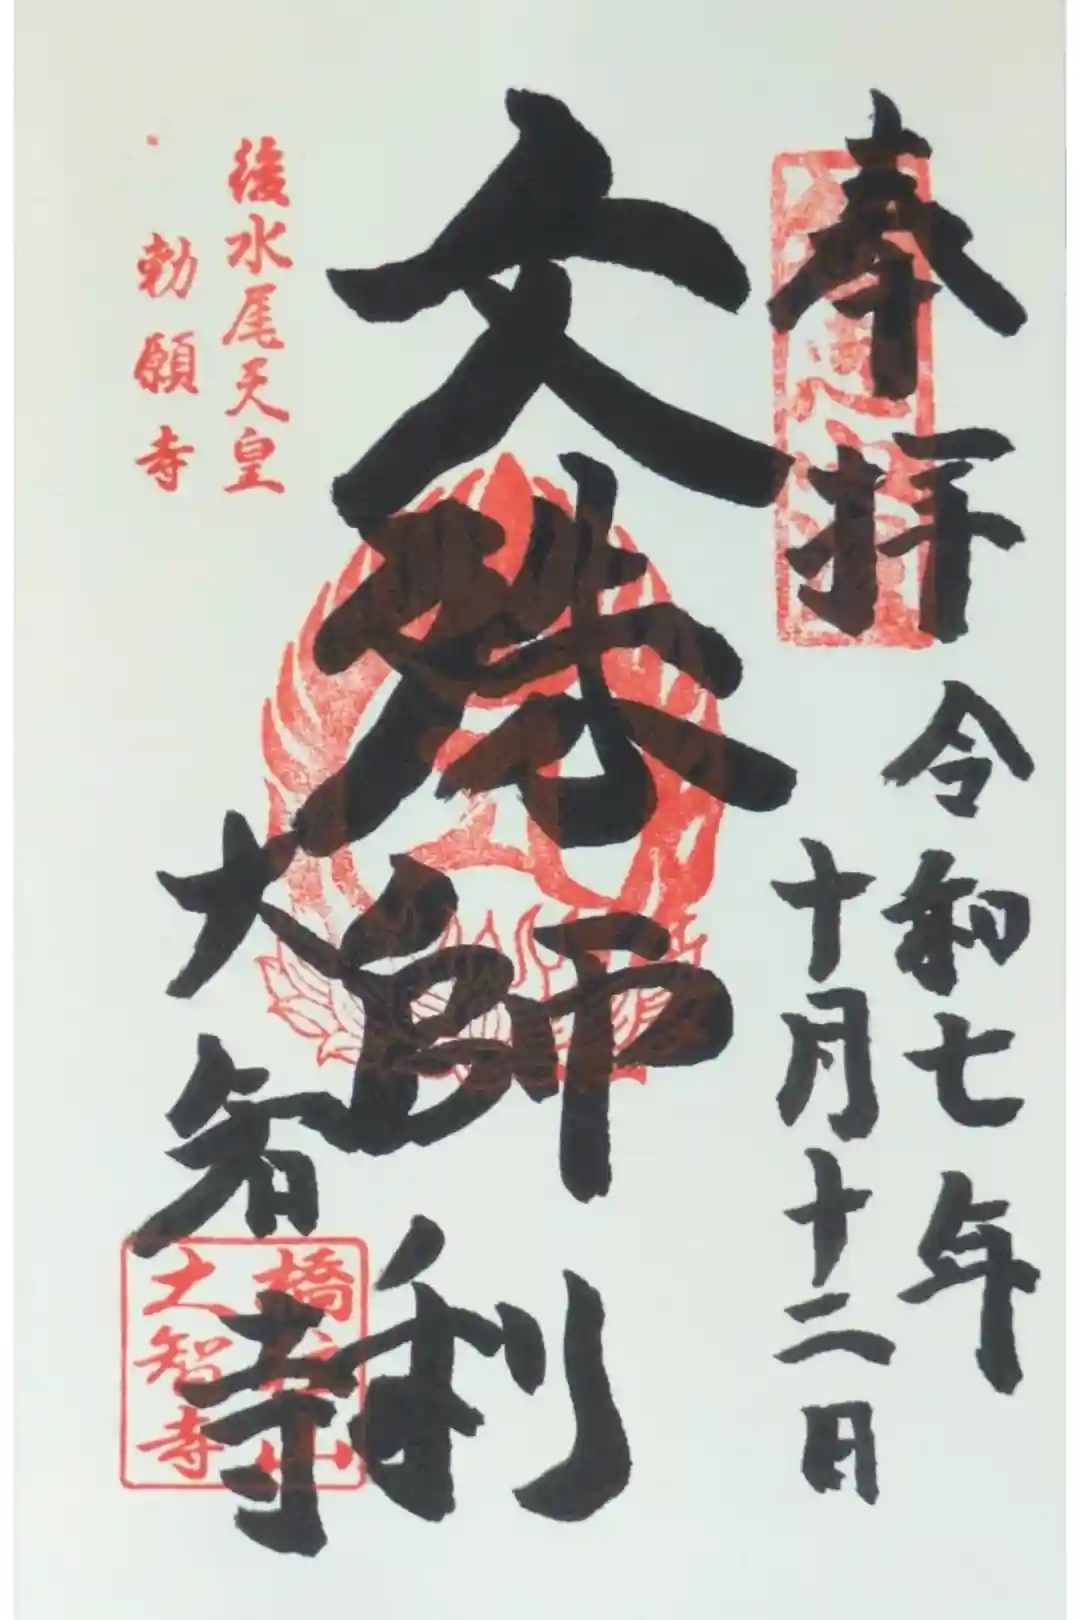 奉拝
令和七年
十月十二日
文殊師利
大智寺
後水尾天皇
勅願寺
橋柱山
大智寺